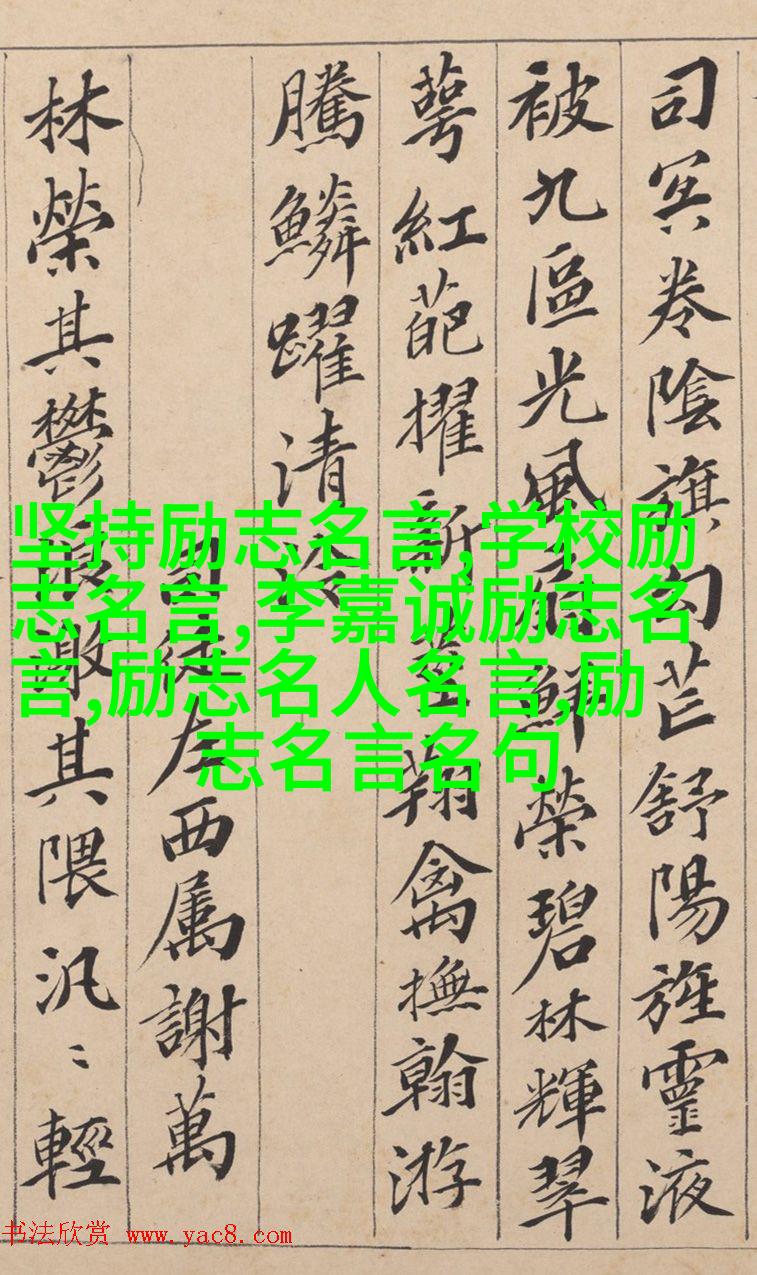 司冥卷陰旗句芒舒陽旌靈液
被九區光風扇鮮榮碧林輝翠
萼紅葩擢新莖翔禽撫翰游
騰鱗躍清泠
司徒左西属謝萬
林榮其鬱浪激其隈汎〻輕
坚持励志名言,学校励
志名言,李嘉诚励志名
言,励志名人名言,励
志名言名句
书法欣赏 www.yac8.com